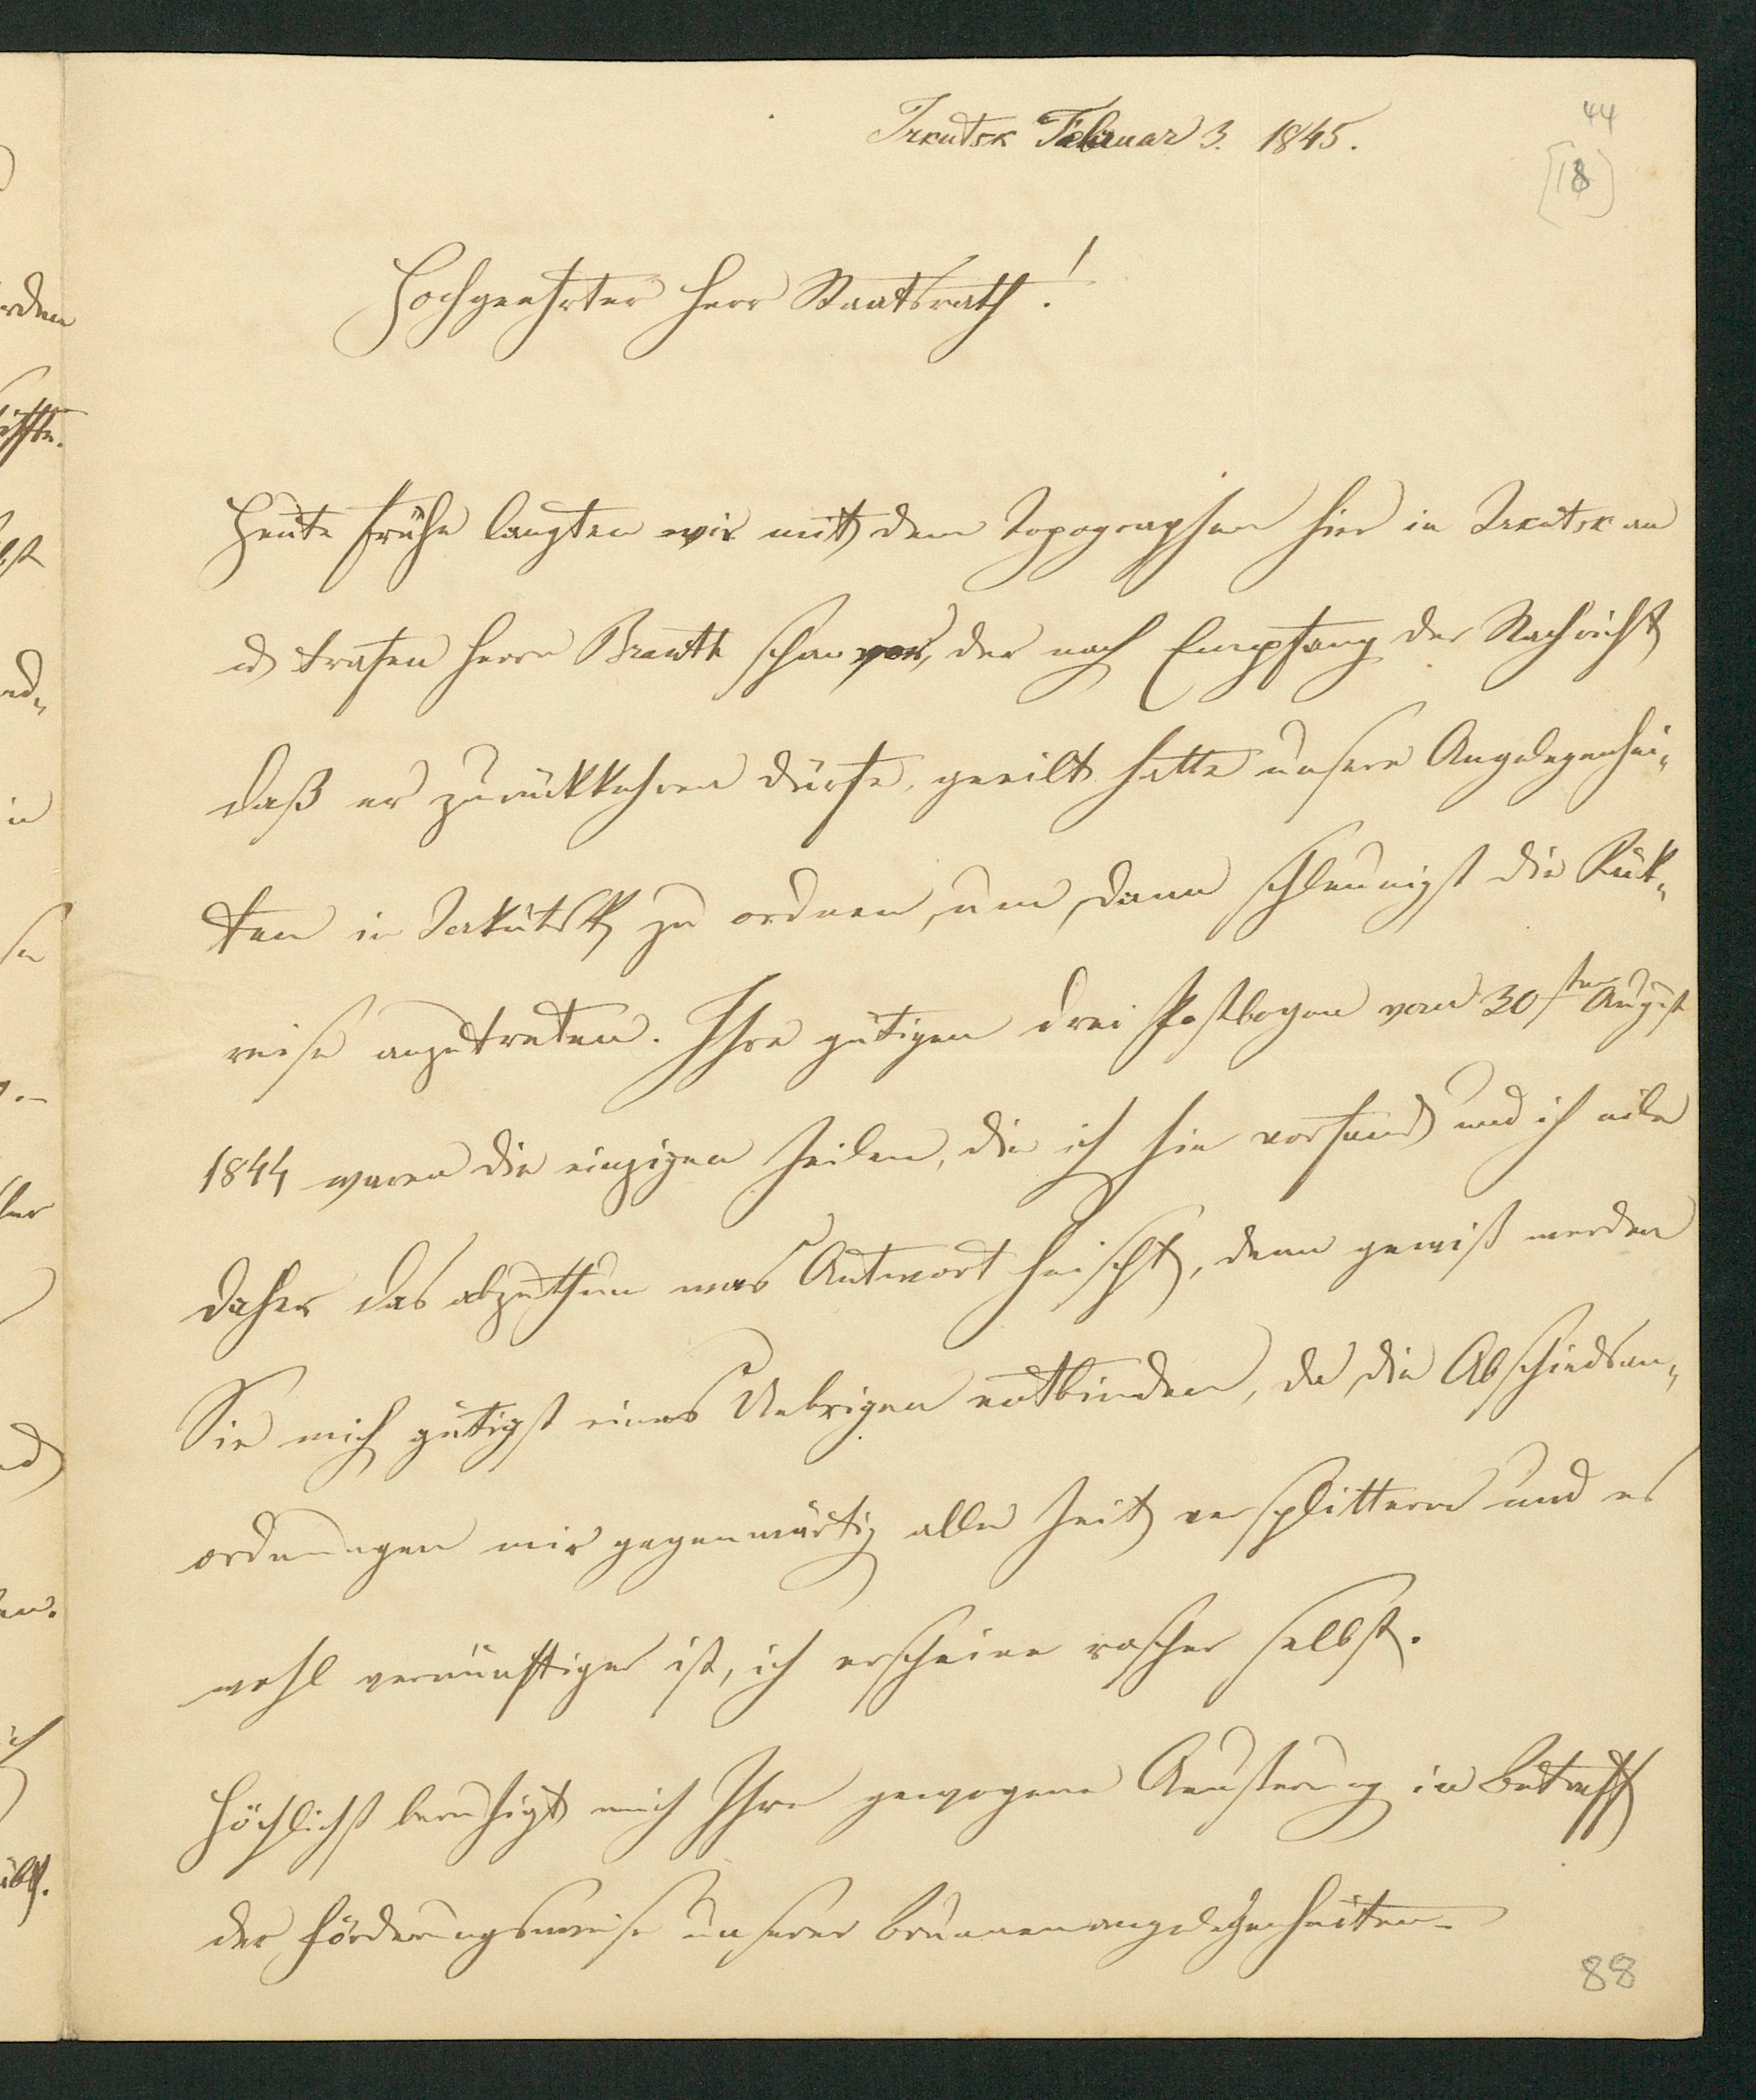 44
[18]
Irkutsk Februar 3. 1845.
Hochgeehrter Herr Staatsrath!
Heute frühe langten wir mit dem Topographen hier in Irkutsk an
u trafen Herrn Branth schon vor, der nach Empfang der Nachricht
daß er zurückkehren dürfe, geeilt hatte unsere Angelegenhei-
ten in Jakutsk zu ordnen, um dann schleunigst die Rük-
reise anzutreten. Ihre gütigen drei Postbogen vom 30sten August
1844 waren die einzigen Zeilen, die ich hie vorfand und ich eile
daher das abzuthun was Antwort heischt, denn gewiß werden
Sie mich gütigst eines Uebrigen entbinden, da die Abschiedsan-
ordnungen mir gegenwärtig alle Zeit versplittern und es
wohl vernünftiger ist, ich erscheine rascher selbst.
Höchlichst beruhigt mich Ihre gewogene Aeußerung in Betreff
der Förderungsweise unserer Brunnenangelegenheiten
88